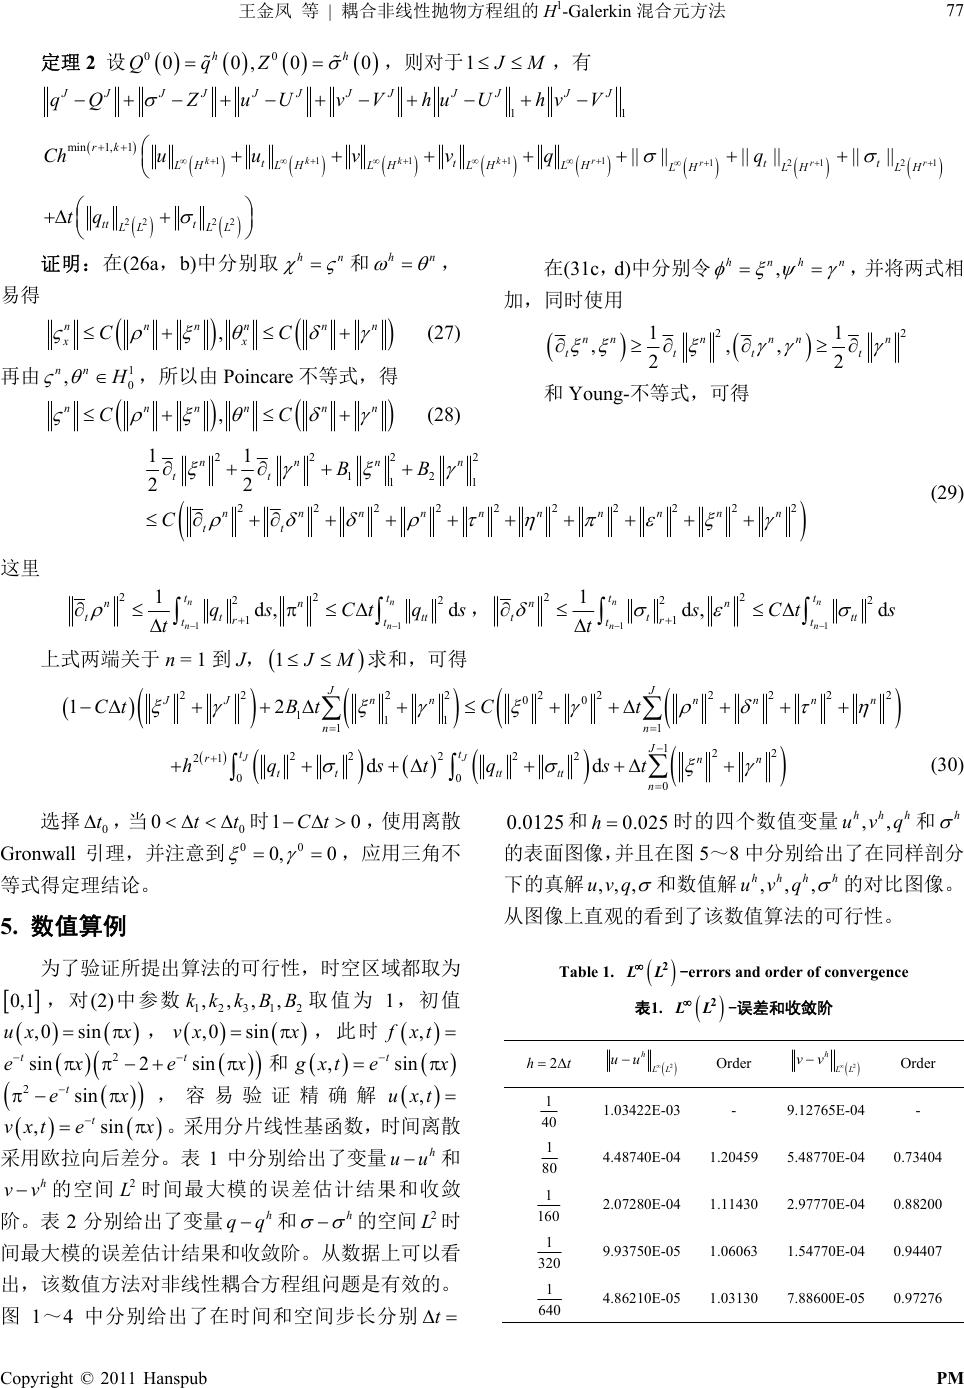 王金凤 等 | 耦合非线性抛物方程组的 H¹-Galerkin 混合元方法 77
定理 2 设 Q⁰(0) = q̃ʰ(0), Z⁰(0) = σ̃ʰ(0)，则对于 1 ≤ J ≤ M，有
‖q^J − Q^J‖ + ‖σ^J − Z^J‖ + ‖u^J − U^J‖ + ‖v^J − V^J‖ + h‖u^J − U^J‖₁ + h‖v^J − V^J‖₁
Ch^{min(r+1,k+1)} (‖u‖_{L^∞(H^{k+1})} + ‖u_t‖_{L^∞(H^{k+1})} + ‖v‖_{L^∞(H^{k+1})} + ‖v_t‖_{L^∞(H^{k+1})} + ‖q‖_{L^∞(H^{r+1})} + ||σ||_{L^∞(H^{r+1})} + ||q_t||_{L²(H^{r+1})} + ||σ_t||_{L²(H^{r+1})}
+Δt(‖q_{tt}‖_{L²(L²)} + ‖σ_t‖_{L²(L²)}))
证明：在(26a，b)中分别取 χʰ = ςⁿ 和 ωʰ = θⁿ，
易得
‖ς_xⁿ‖ ≤ C(‖ρⁿ‖ + ‖ξⁿ‖), ‖θ_xⁿ‖ ≤ C(‖δⁿ‖ + ‖γⁿ‖) (27)
再由 ςⁿ, θⁿ ∈ H₀¹，所以由 Poincare 不等式，得
‖ςⁿ‖ ≤ C(‖ρⁿ‖ + ‖ξⁿ‖), ‖θⁿ‖ ≤ C(‖δⁿ‖ + ‖γⁿ‖) (28)
在(31c，d)中分别令 φʰ = ξⁿ, ψʰ = γⁿ，并将两式相
加，同时使用
(∂_tξⁿ, ξⁿ) ≥ 1/2 ∂_t‖ξⁿ‖², (∂_tγⁿ, γⁿ) ≥ 1/2 ∂_t‖γⁿ‖²
和 Young-不等式，可得
1/2 ∂_t‖ξⁿ‖² + 1/2 ∂_t‖γⁿ‖² + B₁‖ξⁿ‖₁² + B₂‖γⁿ‖₁²
≤ C(‖∂_tρⁿ‖² + ‖∂_tδⁿ‖² + ‖δⁿ‖² + ‖ρⁿ‖² + ‖τⁿ‖² + ‖ηⁿ‖² + ‖πⁿ‖² + ‖εⁿ‖² + ‖ξⁿ‖² + ‖γⁿ‖²) (29)
这里
‖∂_tρⁿ‖² ≤ 1/Δt ∫_{t_{n−1}}^{t_n} ‖q_t‖²_{r+1} ds, ‖πⁿ‖² ≤ CΔt ∫_{t_{n−1}}^{t_n} ‖q_{tt}‖² ds，‖∂_tδⁿ‖² ≤ 1/Δt ∫_{t_{n−1}}^{t_n} ‖σ_t‖²_{r+1} ds, ‖εⁿ‖² ≤ CΔt ∫_{t_{n−1}}^{t_n} ‖σ_{tt}‖² ds
上式两端关于 n = 1 到 J，(1 ≤ J ≤ M) 求和，可得
(1 − CΔt)(‖ξ^J‖² + ‖γ^J‖²) + 2B₁Δt Σ_{n=1}^{J} (‖ξⁿ‖₁² + ‖γⁿ‖₁²) ≤ C(‖ξ⁰‖² + ‖γ⁰‖² + Δt Σ_{n=1}^{J} (‖ρⁿ‖² + ‖δⁿ‖² + ‖τⁿ‖² + ‖ηⁿ‖²)
+h^{2(r+1)} ∫₀^{t_J} (‖q_t‖² + ‖σ_t‖²) ds + (Δt)² ∫₀^{t_J} (‖q_{tt}‖² + ‖σ_{tt}‖²) ds + Δt Σ_{n=0}^{J−1} (‖ξⁿ‖² + ‖γⁿ‖²)) (30)
选择 Δt₀，当 0 < Δt < Δt₀ 时 1 − CΔt > 0，使用离散
Gronwall 引理，并注意到 ξ⁰ = 0, γ⁰ = 0，应用三角不
等式得定理结论。
5. 数值算例
为了验证所提出算法的可行性，时空区域都取为
[0,1]，对(2)中参数 k₁, k₂, k₃, B₁, B₂ 取值为 1，初值
u(x,0) = sin(πx)，v(x,0) = sin(πx)，此时 f(x,t) =
e^{−t} sin(πx)(π² − 2 + e^{−t} sin(πx)) 和 g(x,t) = e^{−t} sin(πx)
(π² − e^{−t} sin(πx))，容易验证精确解 u(x,t) =
v(x,t) = e^{−t} sin(πx)。采用分片线性基函数，时间离散
采用欧拉向后差分。表 1 中分别给出了变量 u − uʰ 和
v − vʰ 的空间 L² 时间最大模的误差估计结果和收敛
阶。表 2 分别给出了变量 q − qʰ 和 σ − σʰ 的空间 L² 时
间最大模的误差估计结果和收敛阶。从数据上可以看
出，该数值方法对非线性耦合方程组问题是有效的。
图 1～4 中分别给出了在时间和空间步长分别 Δt =
0.0125 和 h = 0.025 时的四个数值变量 uʰ, vʰ, qʰ 和 σʰ
的表面图像，并且在图 5～8 中分别给出了在同样剖分
下的真解 u, v, q, σ 和数值解 uʰ, vʰ, qʰ, σʰ 的对比图像。
从图像上直观的看到了该数值算法的可行性。
Table 1. L^∞(L²)-errors and order of convergence
表1. L^∞(L²)-误差和收敛阶
h = 2Δt ‖u − uʰ‖_{L^∞(L²)} Order ‖v − vʰ‖_{L^∞(L²)} Order
1/40 1.03422E-03 - 9.12765E-04 -
1/80 4.48740E-04 1.20459 5.48770E-04 0.73404
1/160 2.07280E-04 1.11430 2.97770E-04 0.88200
1/320 9.93750E-05 1.06063 1.54770E-04 0.94407
1/640 4.86210E-05 1.03130 7.88600E-05 0.97276
Copyright © 2011 Hanspub PM